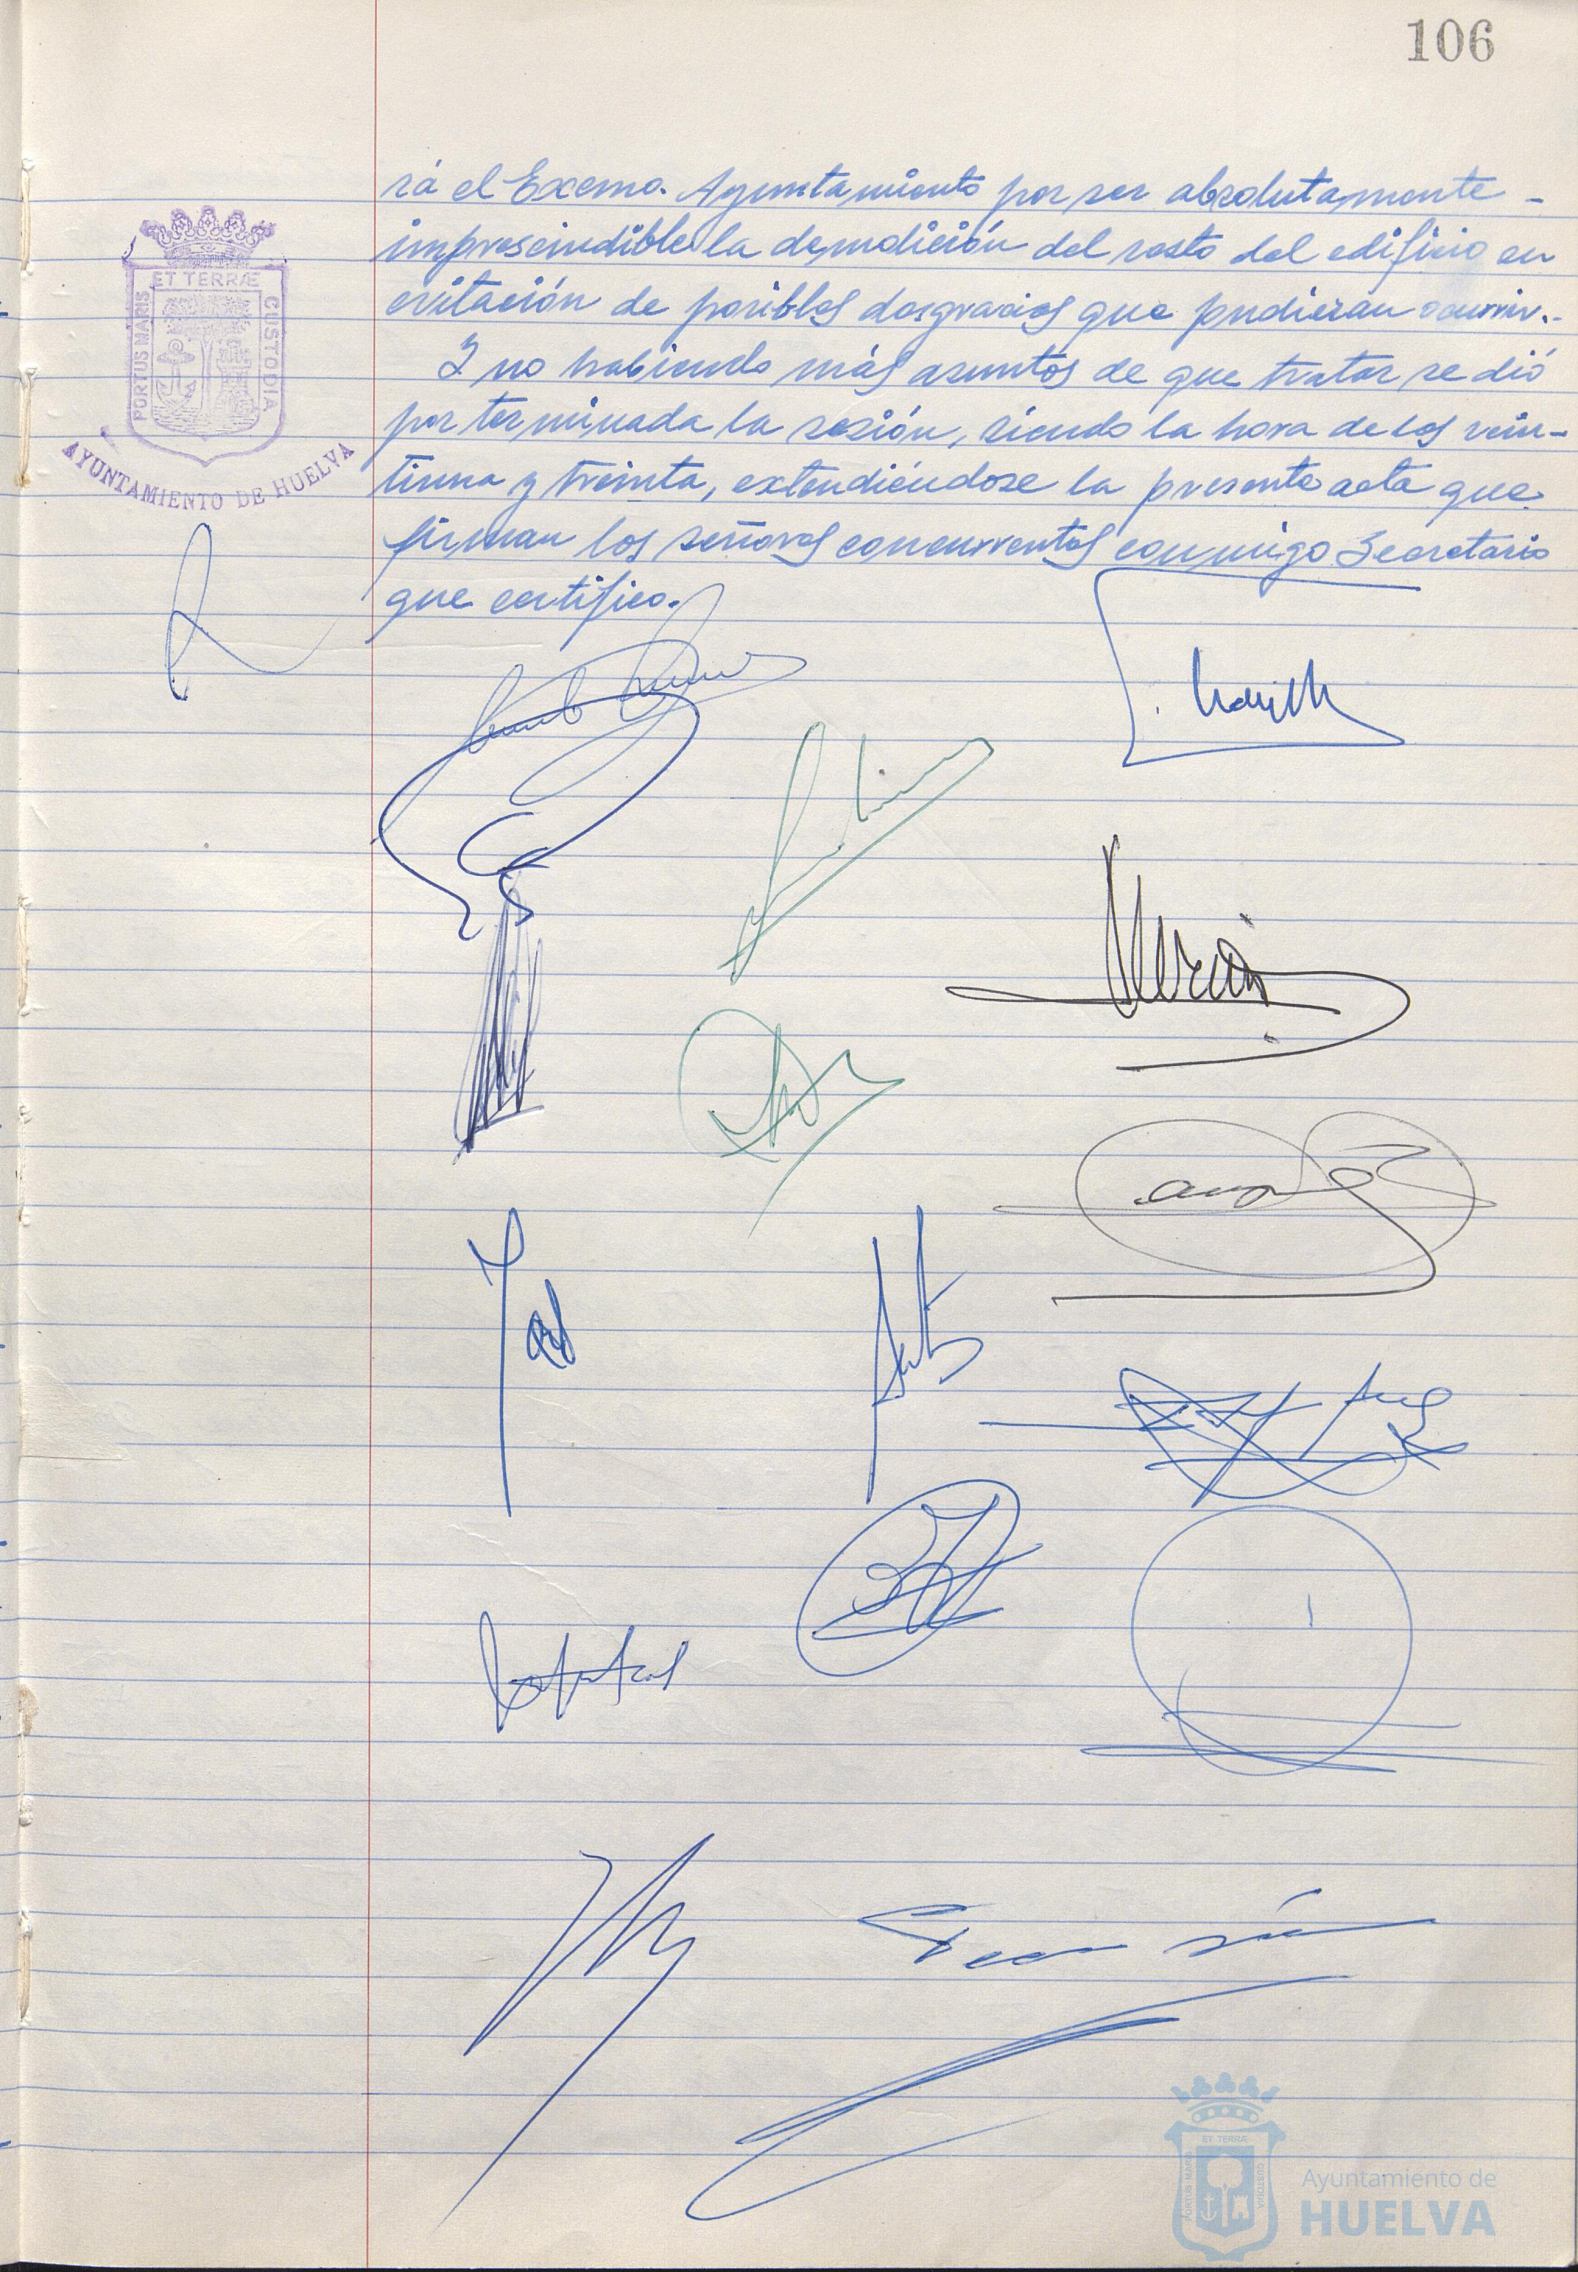 106
rá el Excmo. Ayuntamiento por ser absolutamente -
imprescindible la demolición del resto del edificio en
evitación de posibles desgracias que pudieran ocurrir.-
Y no habiendo más asuntos de que tratar se dió
por terminada la sesión, siendo la hora de las vein-
tiuna y treinta, extendiéndose la presente acta que
firman los señores concurrentes conmigo Secretario
que certifico.
PORTUS MARIS
ET TERRÆ
CUSTODIA
AYUNTAMIENTO DE HUELVA
PORTUS MARIS
ET TERRÆ
CUSTODIA
Ayuntamiento de
HUELVA